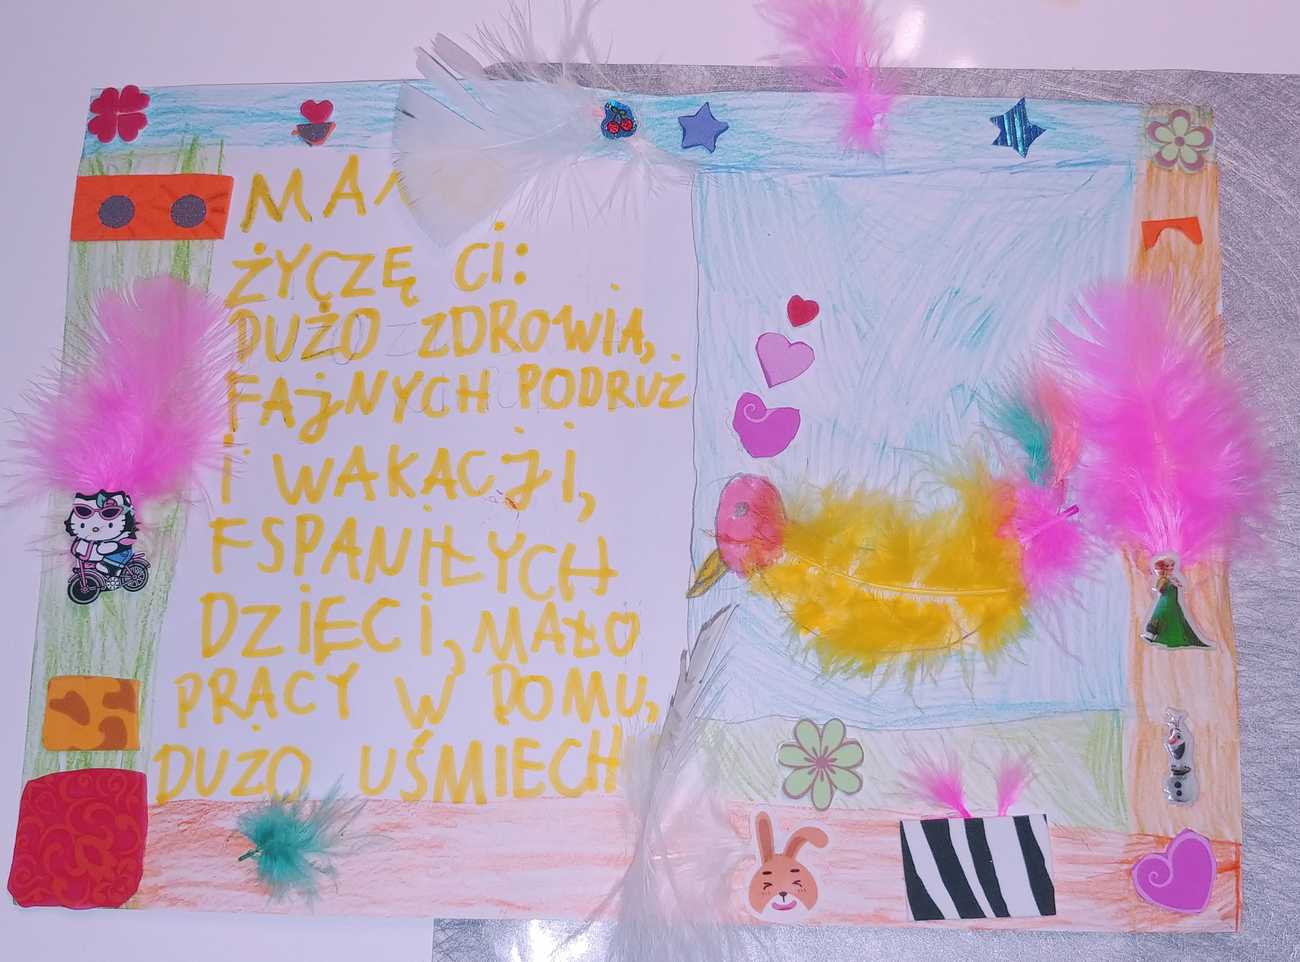 ŻYCZĘ CI:
DUŻO ZDROWIA,
FAJNYCH PODRUŻ
I WAKACJI,
FSPANIŁYCH
DZIECI, MAŁO
PRACY W DOMU,
DUŻO UŚMIECH